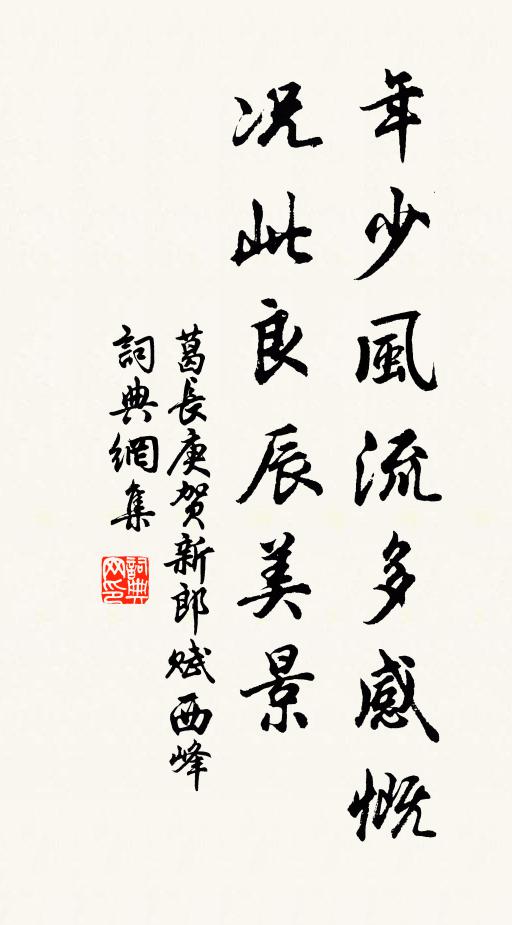 年少風流多感慨
况此良辰美景
葛長庚贺新郎赋西峰
詞典網集
詞典网印